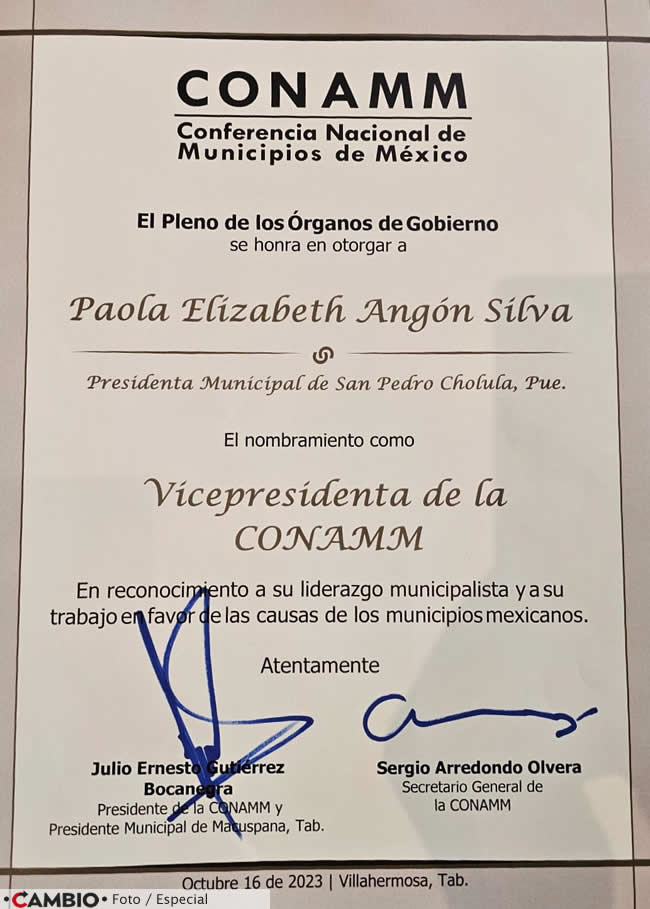 CONAMM
Conferencia Nacional de
Municipios de México
El Pleno de los Órganos de Gobierno
se honra en otorgar a
Paola Elizabeth Angón Silva
Presidenta Municipal de San Pedro Cholula, Pue.
El nombramiento como
Vicepresidenta de la
CONAMM
En reconocimiento a su liderazgo municipalista y a su
trabajo en favor de las causas de los municipios mexicanos.
Atentamente
Julio Ernesto Gutiérrez
Bocanegra
Presidente de la CONAMM y
Presidente Municipal de Macuspana, Tab.
Sergio Arredondo Olvera
Secretario General de
la CONAMM
Octubre 16 de 2023 | Villahermosa, Tab.
•CAMBIO• Foto / Especial